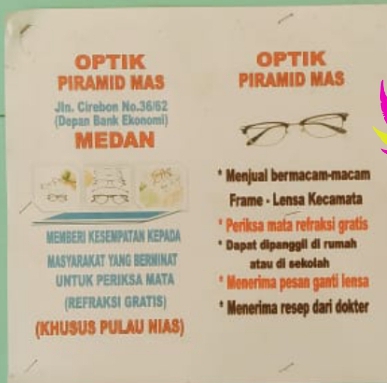 OPTIK
PIRAMID MAS
Jln. Cirebon No.36/62
(Depan Bank Ekonomi)
MEDAN
MEMBERI KESEMPATAN KEPADA
MASYARAKAT YANG BERMINAT
UNTUK PERIKSA MATA
(REFRAKSI GRATIS)
(KHUSUS PULAU NIAS)
OPTIK
PIRAMID MAS
* Menjual bermacam-macam
Frame - Lensa Kecamata
* Periksa mata refraksi gratis
* Dapat dipanggil di rumah
atau di sekolah
* Menerima pesan ganti lensa
* Menerima resep dari dokter